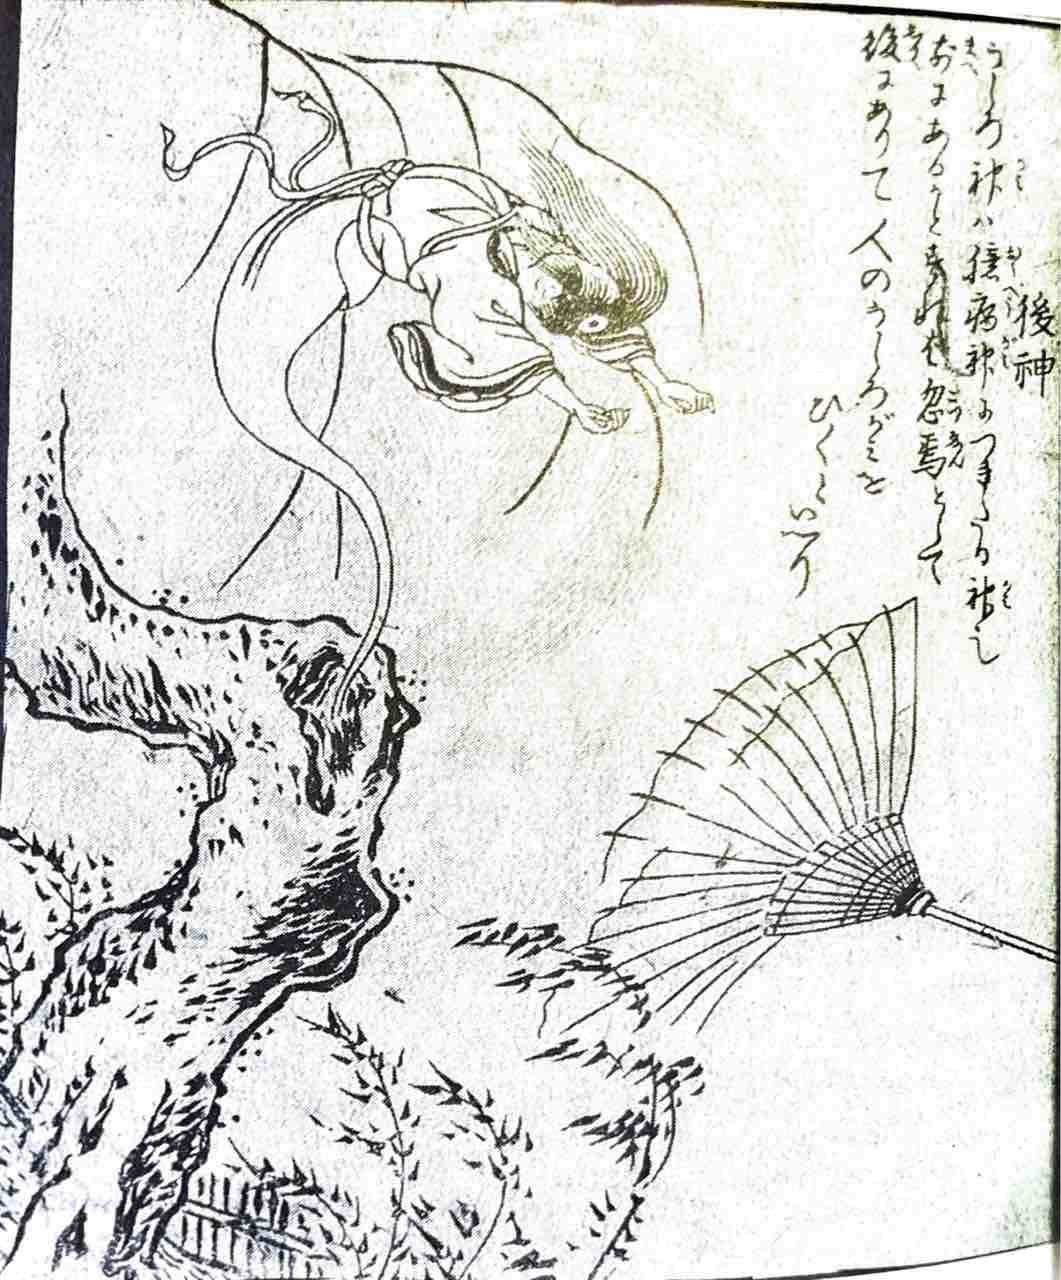 後神
うしろ神ハ臆病神につきたる神也
前にあるかとすれば忽焉として
後にありて人のうしろがミを
ひくといへり